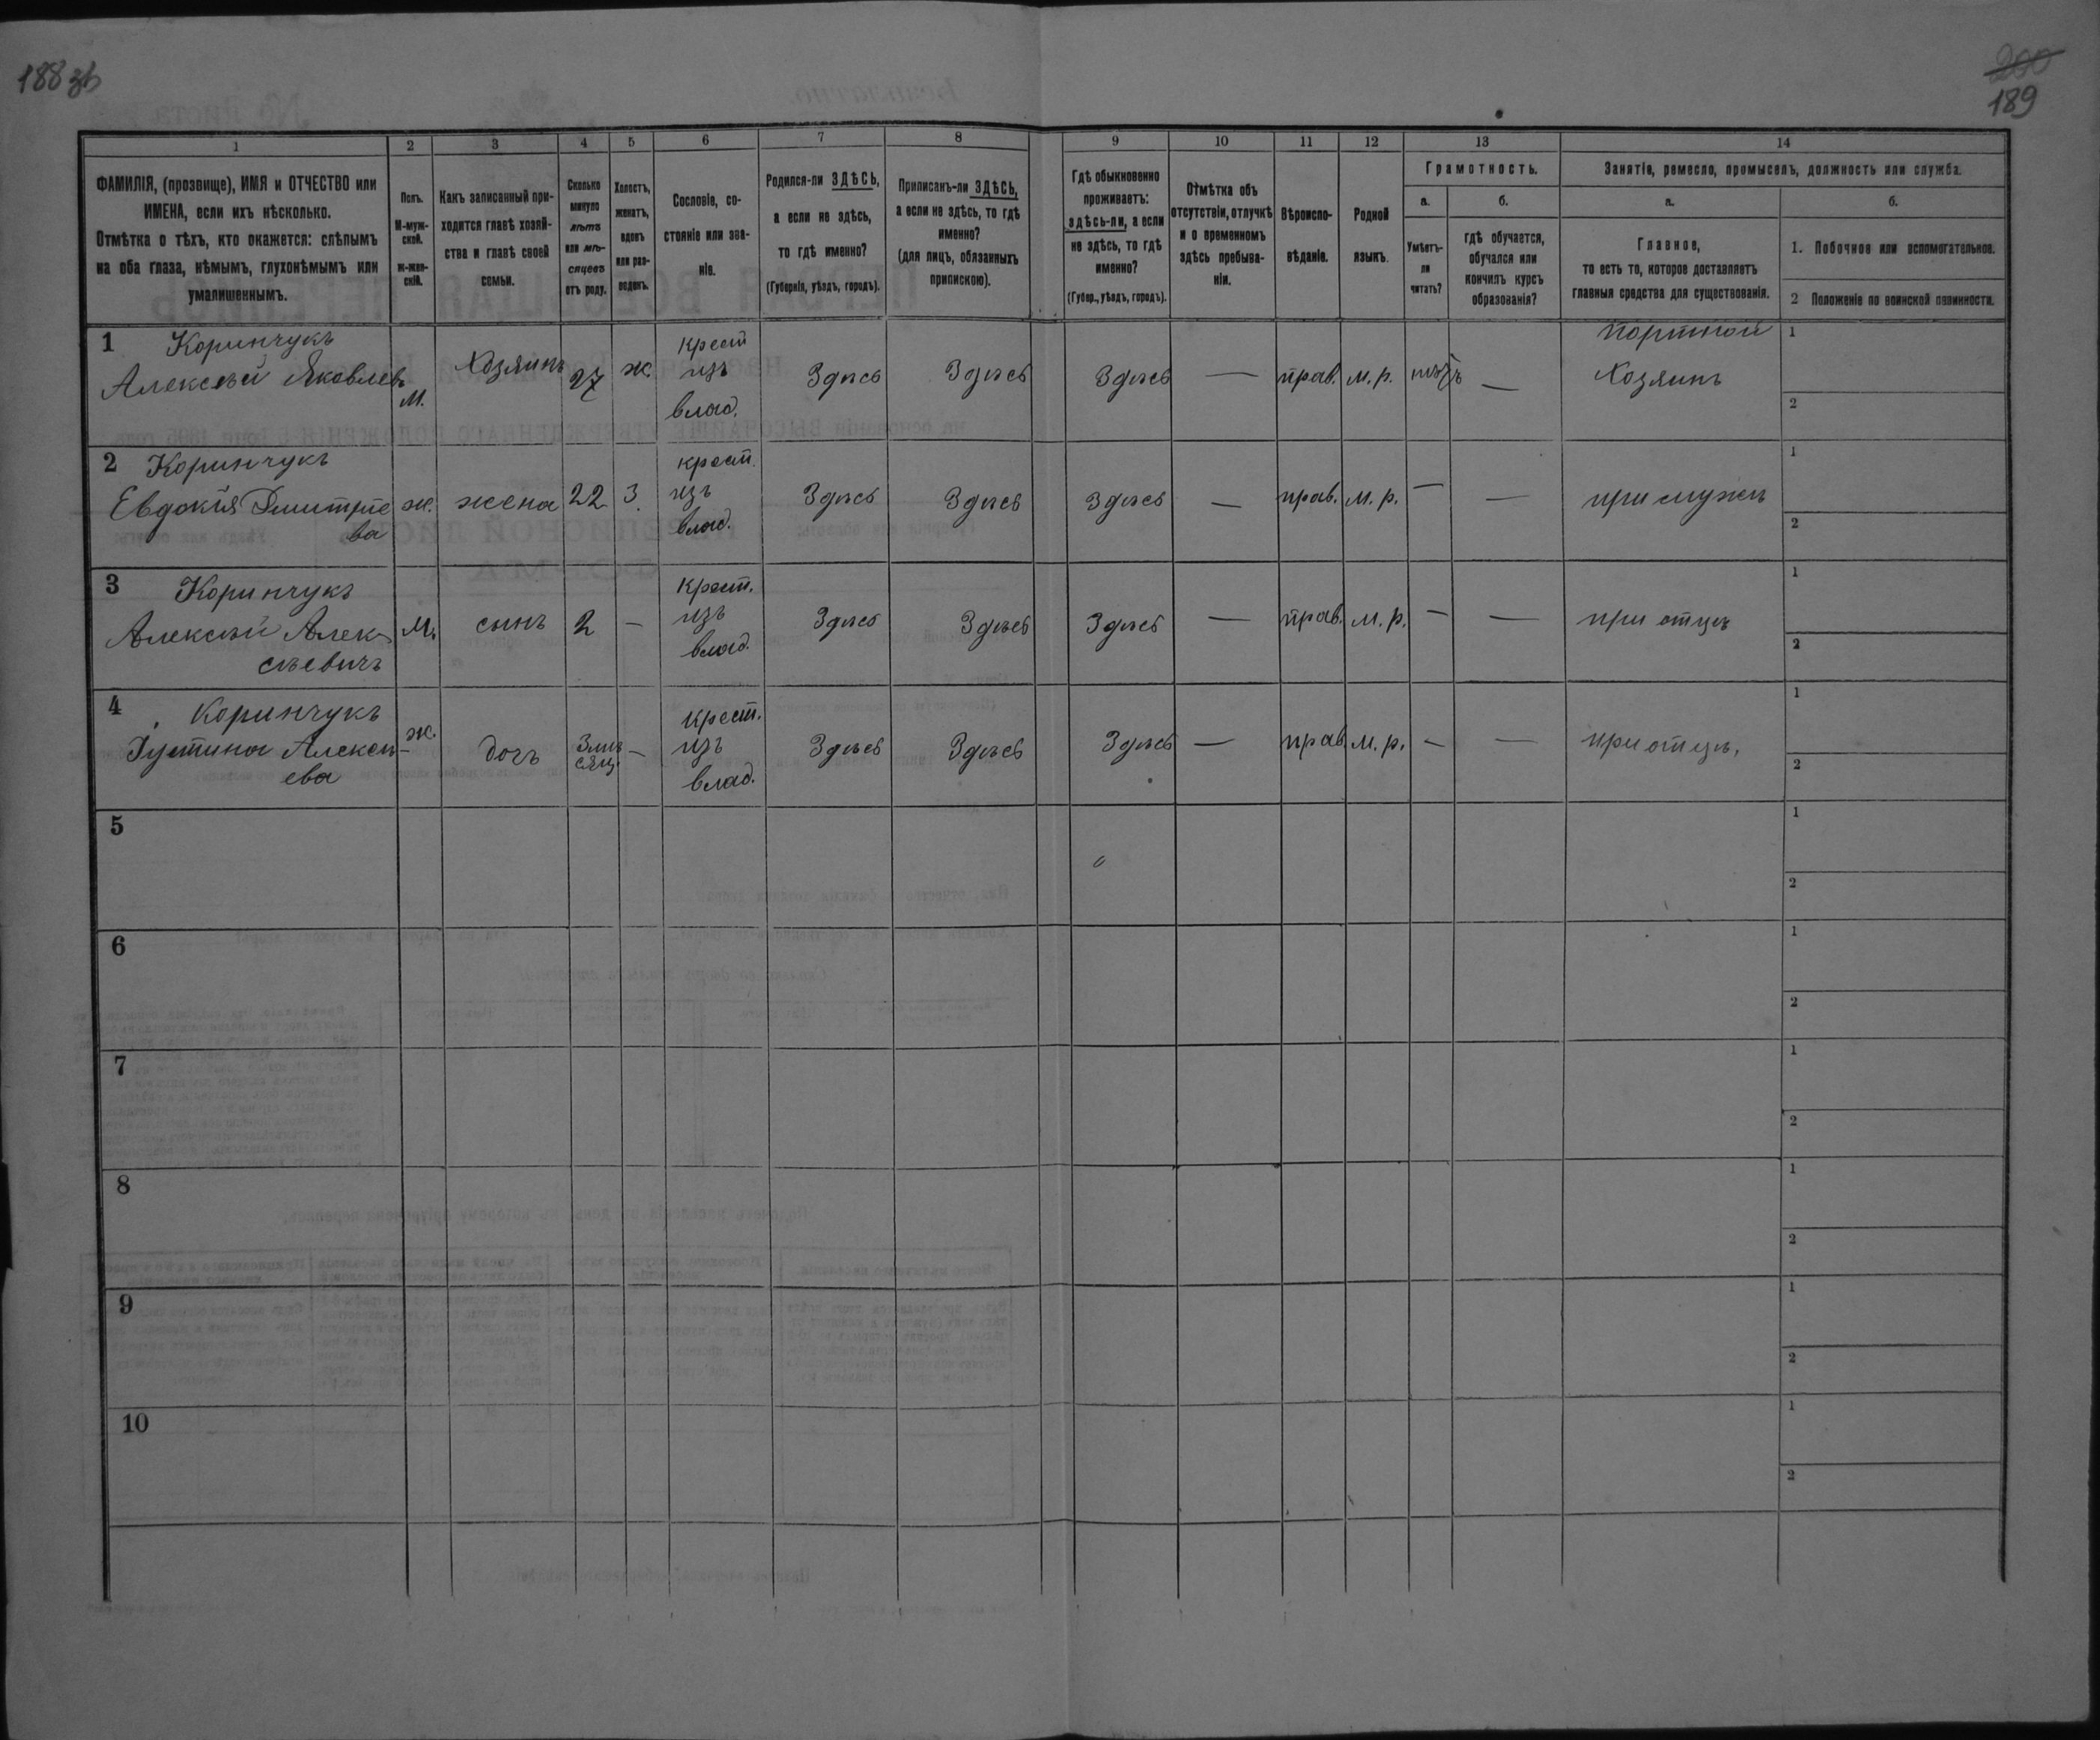 188 зв
200
189
1
2
3
4
5
6
7
8
9
10
11
12
13
14
ФАМИЛІЯ, (прозвище), ИМЯ и ОТЧЕСТВО или
ИМЕНА, если ихъ нѣсколько.
Отмѣтка о тѣхъ, кто окажется: слѣпымъ
на оба глаза, нѣмымъ, глухонѣмымъ или
умалишеннымъ.
Полъ.
М-муж-
ской.
ж-жен-
скій.
Какъ записанный при-
ходится главѣ хозяй-
ства и главѣ своей
семьи.
Сколько
минуло
лѣтъ
или мѣ-
сяцевъ
отъ роду.
Холостъ,
женатъ,
вдовъ
или раз-
веденъ.
Сословіе, со-
стояніе или зва-
ніе.
Родился-ли ЗДѢСЬ,
а если не здѣсь,
то гдѣ именно?
(Губернія, уѣздъ, городъ).
Приписанъ-ли ЗДѢСЬ,
а если не здѣсь, то гдѣ
именно?
(для лицъ, обязанныхъ
припискою).
Гдѣ обыкновенно
проживаетъ:
здѣсь-ли, а если
не здѣсь, то гдѣ
именно?
(Губер., уѣздъ, городъ).
Отмѣтка объ
отсутствіи, отлучкѣ
и о временномъ
здѣсь пребыва-
ніи.
Вѣроиспо-
вѣданіе.
Родной
языкъ.
Грамотность.
а.
Умѣетъ-
ли
читать?
б.
гдѣ обучается,
обучался или
кончилъ курсъ
образованія?
Занятіе, ремесло, промыселъ, должность или служба.
а.
Главное,
то есть то, которое доставляетъ
главныя средства для существованія.
б.
1. Побочное или вспомогательное.
2 Положеніе по воинской повинности.
1 Коринчукъ
Алексѣй Яковлевъ
м. Хозяинъ 27 ж.
Крест
изъ
влад.
Здѣсь Здѣсь Здѣсь — прав. м. р. —
Портной
Хозяинъ
1
2
2 Коринчукъ
Евдокія Дмитріе
ва
ж. жена 22 З.
крест.
изъ
влад.
Здѣсь Здѣсь Здѣсь — прав. м. р. — — при мужѣ
1
2
3 Коринчукъ
Алексѣй Алек
сѣевичъ
М. сынъ 2 —
Крест.
изъ
влад.
Здѣсь Здѣсь Здѣсь — прав. м. р. — — при отцѣ
1
2
4 Коринчукъ
Іустина Алексѣ-
ева
ж. дочь
3 мѣ
сяц. —
Крест.
изъ
влад.
Здѣсь Здѣсь Здѣсь — прав. м. р. — — при отцѣ.
1
2
5
1
2
6
1
2
7
1
2
8
1
2
9
1
2
10
1
2